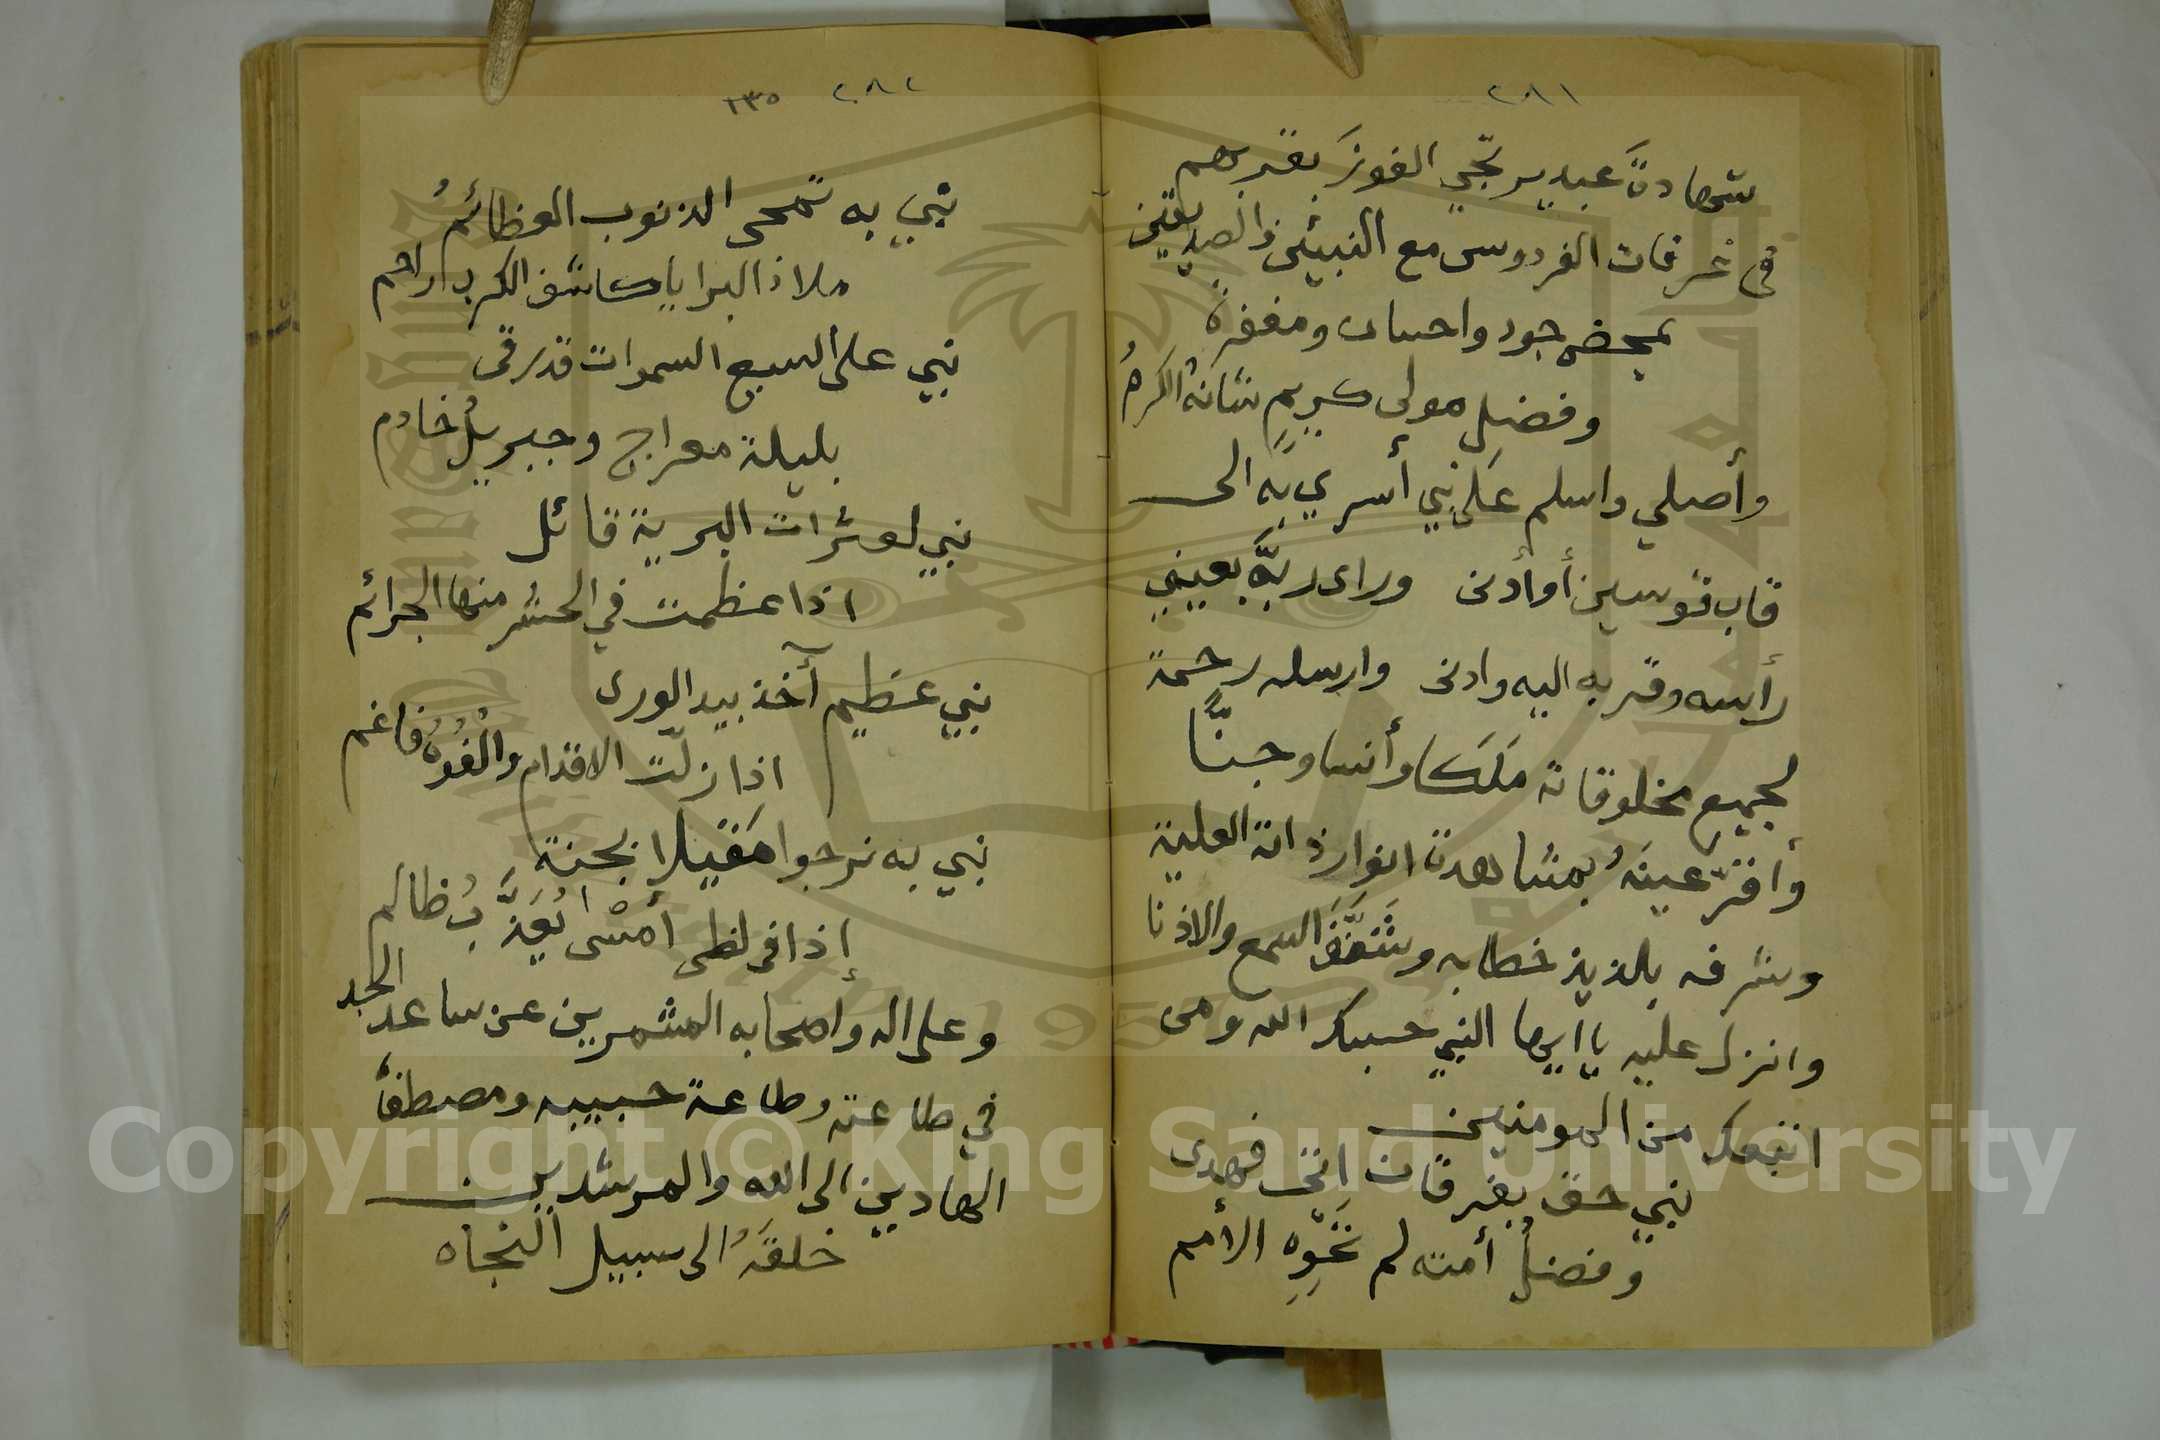 ٢٨١
شهادة عبد يرتجّي الفوزَ بقربهم
في غرفات الفردوس مع النبيّن والصديقين
بمحض جود واحسان ومغفرة
وفضلِ مولى كريمٍ شانهُ الكرمُ
وأصلي واسلم على نبي أسري به الى
قاب قوسين أو أدنى وراى ربَّه بعيني
رأسه وقربه اليه وادنى وارسله رحمة
لجميع مخلوقاته مَلَكا وأنسا وجنًّا
وأقرّ عينَهُ بمشاهدة انوار ذاته العلية
وشرفه بلذيذ خطابه وشَنَّفَ السمع والاذنا
وانزل عليه يا ايها النبي حسبك الله ومن
اتبعك من المومنين
نبي حق بفرقان اتى فهدى
وفضلُ أمته لم تَحْوِهِ الأمم
٢٨٢ ١٣٥
نبي به تمحى الذنوب العظائمُ
ملاذ البرايا كاشف الكرب راحم
نبي على السبع السموات قد رقى
بليلة معراج وجبريلُ خادم
نبي لعثرات البرية قائل
اذا عظمت في الحشر منها الجرائم
نبي عظيم آخذ بيد الورى
اذا زلّت الاقدام والفُوهُ فاغم
نبي به نرجوا مَقيلا بجنة
إذا في لظى أمسْى يُعَذَّبُ ظالم
وعلى اله واصحابه المشمرين عن ساعد الجد
في طاعته وطاعة حبيبه ومصطفاه
الهادين الى الله والمرشدين
خلقَهُ الى سبيل النجاه
Copyright © King Saud University
1957